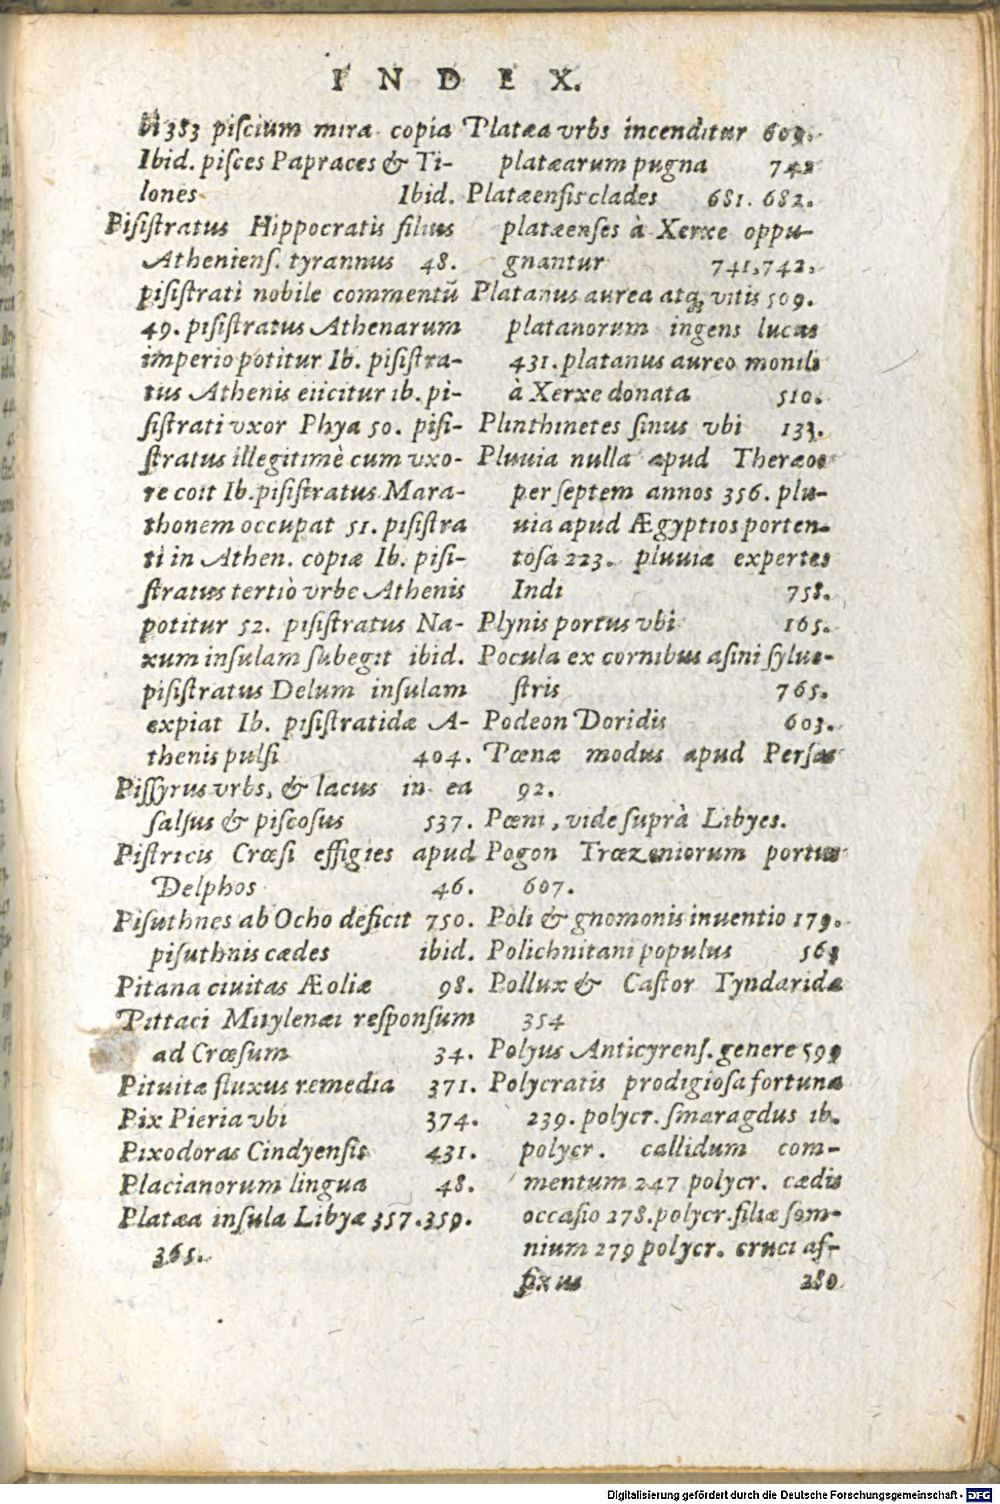 INDEX.
383 piſcium mira copia
Ibid. piſces Papraces & Ti-
lones Ibid.
Piſiſtratus Hippocratis filius
Athenienſ. tyrannus 48.
piſiſtrati nobile commentū
49. piſiſtratus Athenarum
imperio potitur Ib. piſiſtra-
tus Athenis eiicitur ib. pi-
ſiſtrati vxor Phya 50. piſi-
ſtratus illegitimè cum vxo-
re coit Ib. piſiſtratus Mara-
thonem occupat 51. piſiſtra
ti in Athen. copiæ Ib. piſi-
ſtratus tertiò vrbe Athenis
potitur 52. piſiſtratus Na-
xum inſulam ſubegit ibid.
piſiſtratus Delum inſulam
expiat Ib. piſiſtratidæ A-
thenis pulſi 404.
Piſſyrus vrbs, & lacus in ea
ſalſus & piſcoſus 537.
Piſtricis Crœſi effigies apud
Delphos 46.
Piſuthnes ab Ocho deficit 750.
piſuthnis cædes ibid.
Pitana ciuitas Æoliæ 98.
Pittaci Mitylenæi reſponſum
ad Crœſum 34.
Pituitæ fluxus remedia 371.
Pix Pieria vbi 374.
Pixodoras Cindyenſis 431.
Placianorum lingua 48.
Platæa inſula Libyæ 357.359.
365.
Platæa vrbs incenditur 609.
platæarum pugna 742
Platæenſis clades 681. 682.
platæenſes à Xerxe oppu-
gnantur 741,742.
Platanus aurea atq; vitis 509.
platanorum ingens lucus
431. platanus aureo monili
à Xerxe donata 510.
Plinthinetes ſinus vbi 133.
Pluuia nulla apud Theræos
per ſeptem annos 356. plu-
uia apud Ægyptios porten-
toſa 223. pluuiæ expertes
Indi 758.
Plynis portus vbi 165.
Pocula ex cornibus aſini ſylue-
ſtris 765.
Podeon Doridis 603.
Pœnæ modus apud Perſas
92.
Pœni, vide ſuprà Libyes.
Pogon Trœzeniorum portus
607.
Poli & gnomonis inuentio 179.
Polichnitani populus 563
Pollux & Caſtor Tyndaridæ
354
Polyus Anticyrenſ. genere 599
Polycratis prodigioſa fortuna
239. polycr. ſmaragdus ib.
polycr. callidum com-
mentum 247 polycr. cædis
occaſio 278. polycr. filiæ ſom-
nium 279 polycr. cruci af-
fixus 280
Digitalisierung gefördert durch die Deutsche Forschungsgemeinschaft - DFG